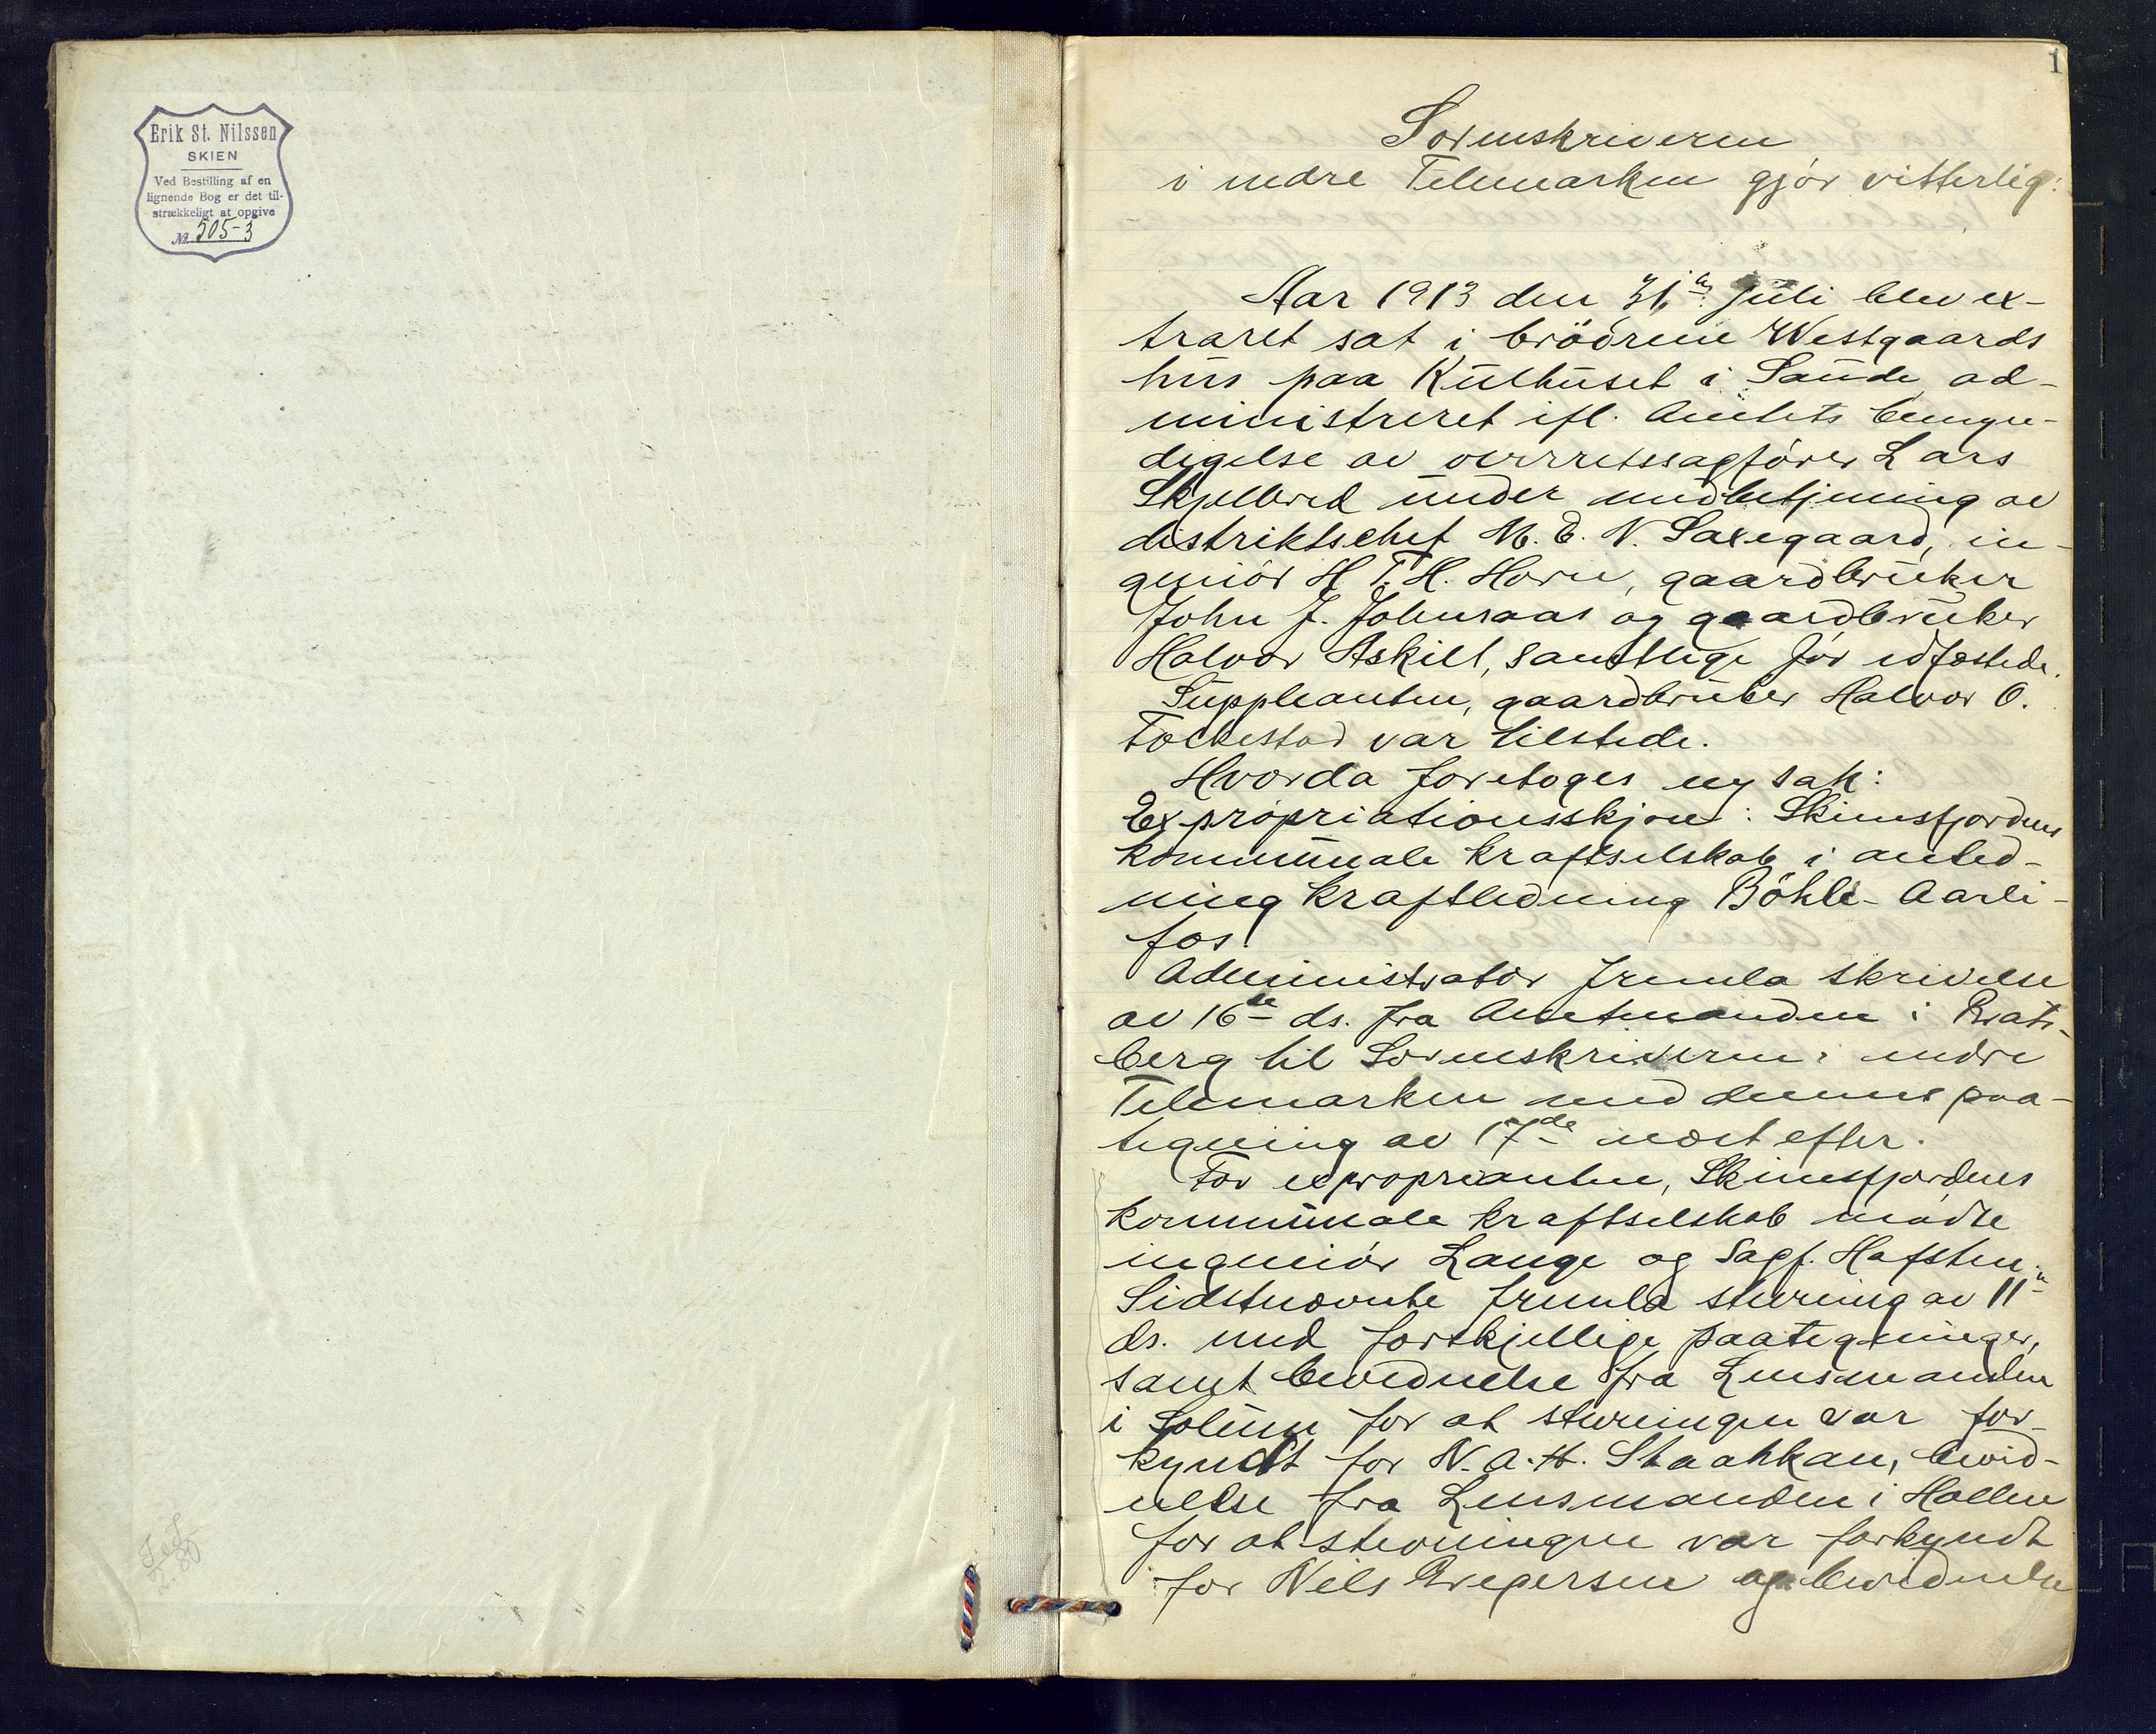 Erik St. Nilssen
SKIEN
Ved Bestilling af en
lignende Bog er det til-
strækkeligt at opgive
№ 505-3
1
Sorenskriveren
i nedre Telemarken gjør vitterlig:
Aar 1913 den 31te Juli blev ex-
traret sat i brödrene Westgaards
hus paa Kulhuset i Saude, ad-
ministreret ifl. Amtets bemyn-
digelse av overretssagfører Lars
Skjelbred under medbetjening av
distriktschef M. E. N. Saxegaard, in-
geniør H. T. H. Horn, gaardbruker
John J. Johnsaas og gaardbruker
Halvor Askilt, samtlige før edfæstede.
Suppleanten, gaardbruker Halvor O.
Folkestad var tilstede.
Hvorda foretoges ny sak:
Expropriationsskjøn: Skiensfjordens
kommunale kraftselskab i anled-
ning kraftledning Böhle- Aarli-
fos.
Administrator fremla skrivelse
av 16de ds. fra Amtmanden i Brats-
berg til Sorenskriveren i nedre
Telemarken med dennes paa-
tegning av 17de næst efter.
For exproprianten, Skiensfjordens
kommunale kraftselskab mødte
ingeniør Lange og Sagf. Hafsten.
Sidstnævnte fremla stevning av 11te
ds. med forskjellige paategninger,
samt bevidnelse fra Lensmanden
i Solum for at stevningen var for-
kyndt for N. A. H. Staahkan, bevid-
nelse fra Lensmanden i Hollen
for at stevningen var forkyndt
for Nels Gregersen og bevidnelse